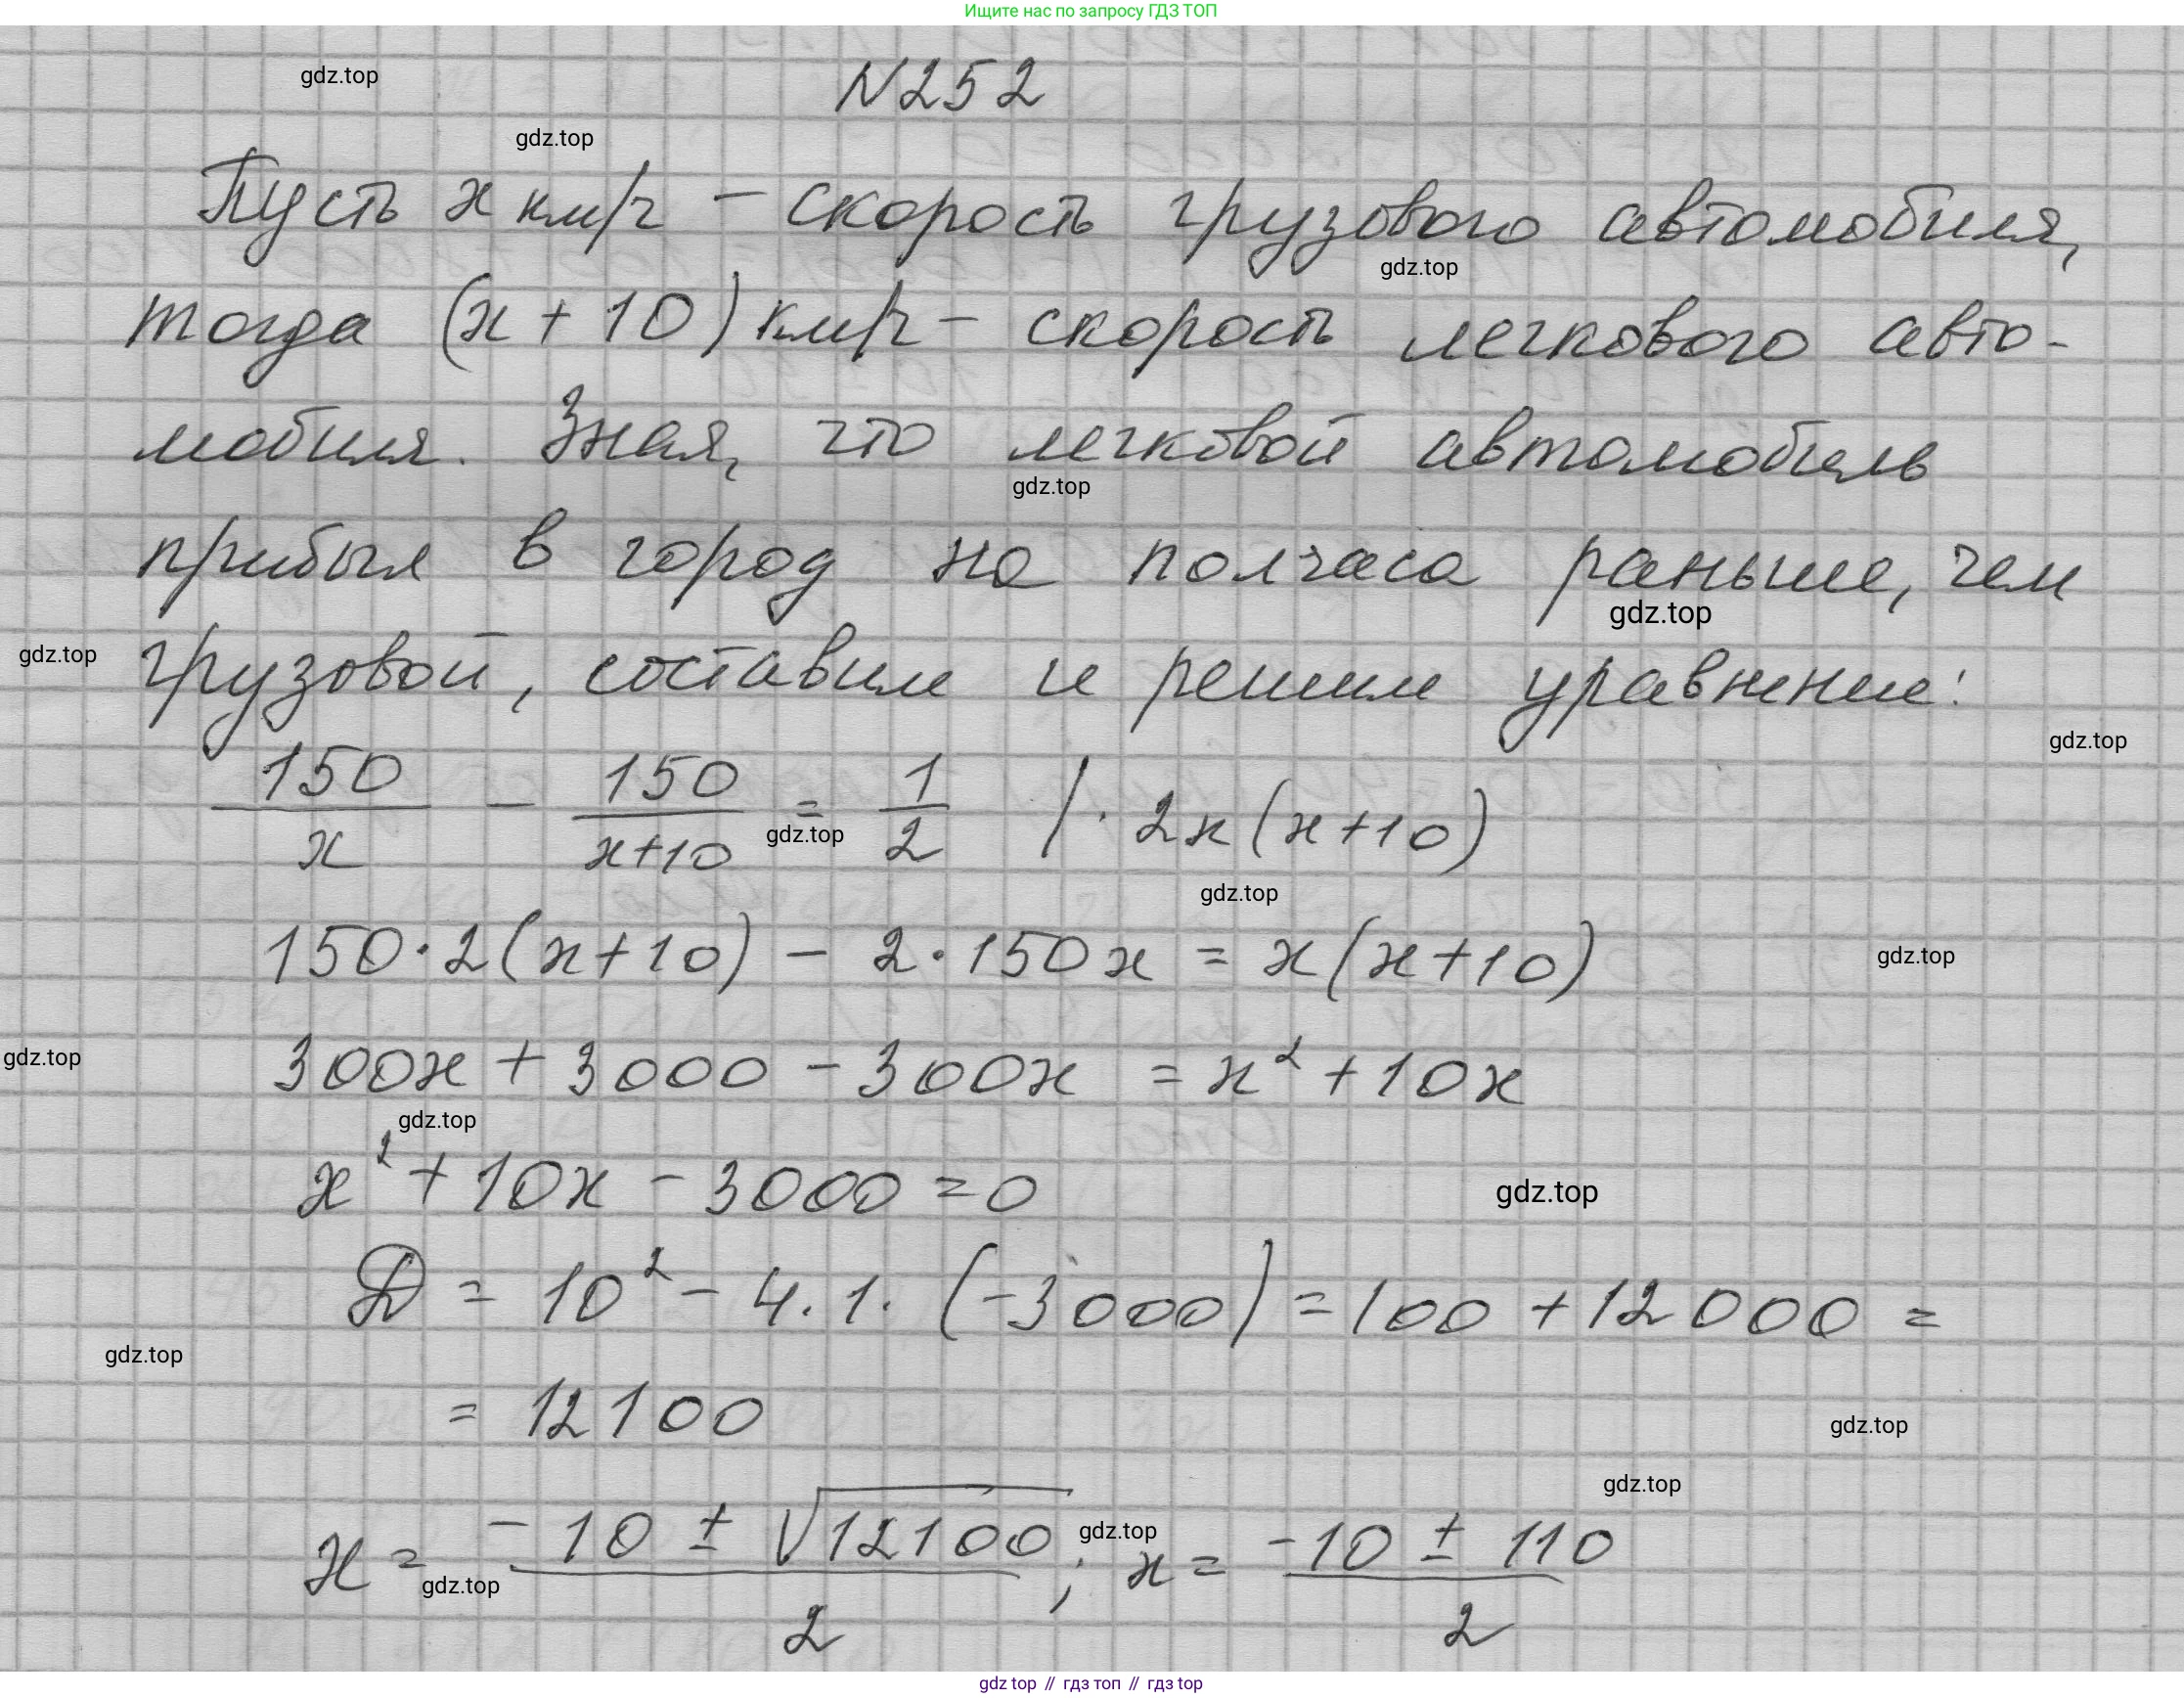 Ищите нас по запросу ГДЗ ТОП
gdz.top
N252
gdz.top
Пусть x км/ч – скорость грузового автомобиля,
gdz.top
тогда (x + 10) км/ч – скорость легкового авто-
мобиля. Зная, что легковой автомобиль
gdz.top
прибыл в город на полчаса раньше, чем
gdz.top
gdz.top
грузовой, составим и решим уравнение:
gdz.top
150/x – 150/(x+10) = 1/2 | · 2x(x+10)
gdz.top
gdz.top
150·2(x+10) – 2·150x = x(x+10)
gdz.top
gdz.top
300x + 3000 – 300x = x² + 10x
gdz.top
x² + 10x – 3000 = 0
gdz.top
D = 10² – 4·1·(–3000) = 100 + 12000 =
gdz.top
= 12100
gdz.top
gdz.top
x = (–10 ± √12100)/2; x = (–10 ± 110)/2
gdz.top
gdz.top
gdz.top // гдз топ // гдз top